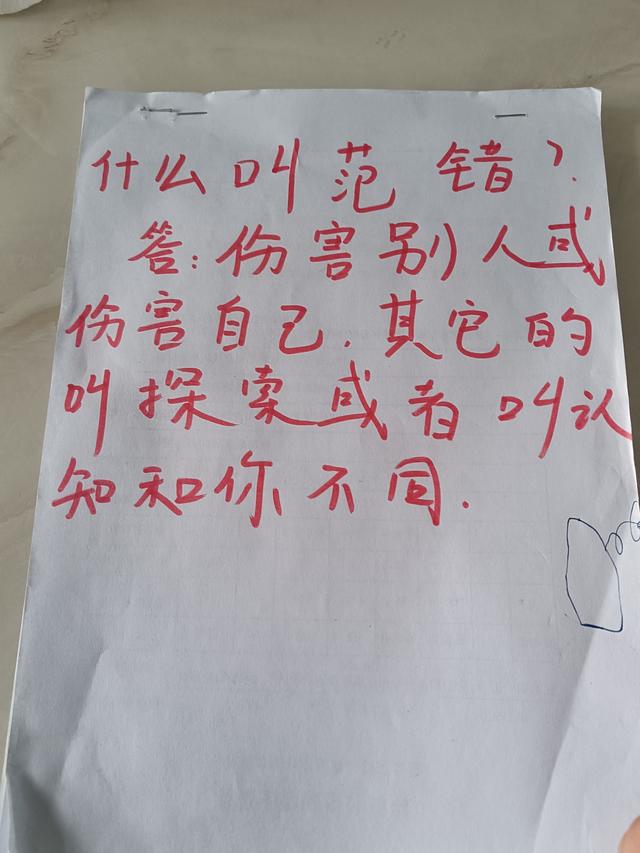 什么叫范错?
答:伤害别人或
伤害自己.其它的
叫探索或者叫认
知和你不同.